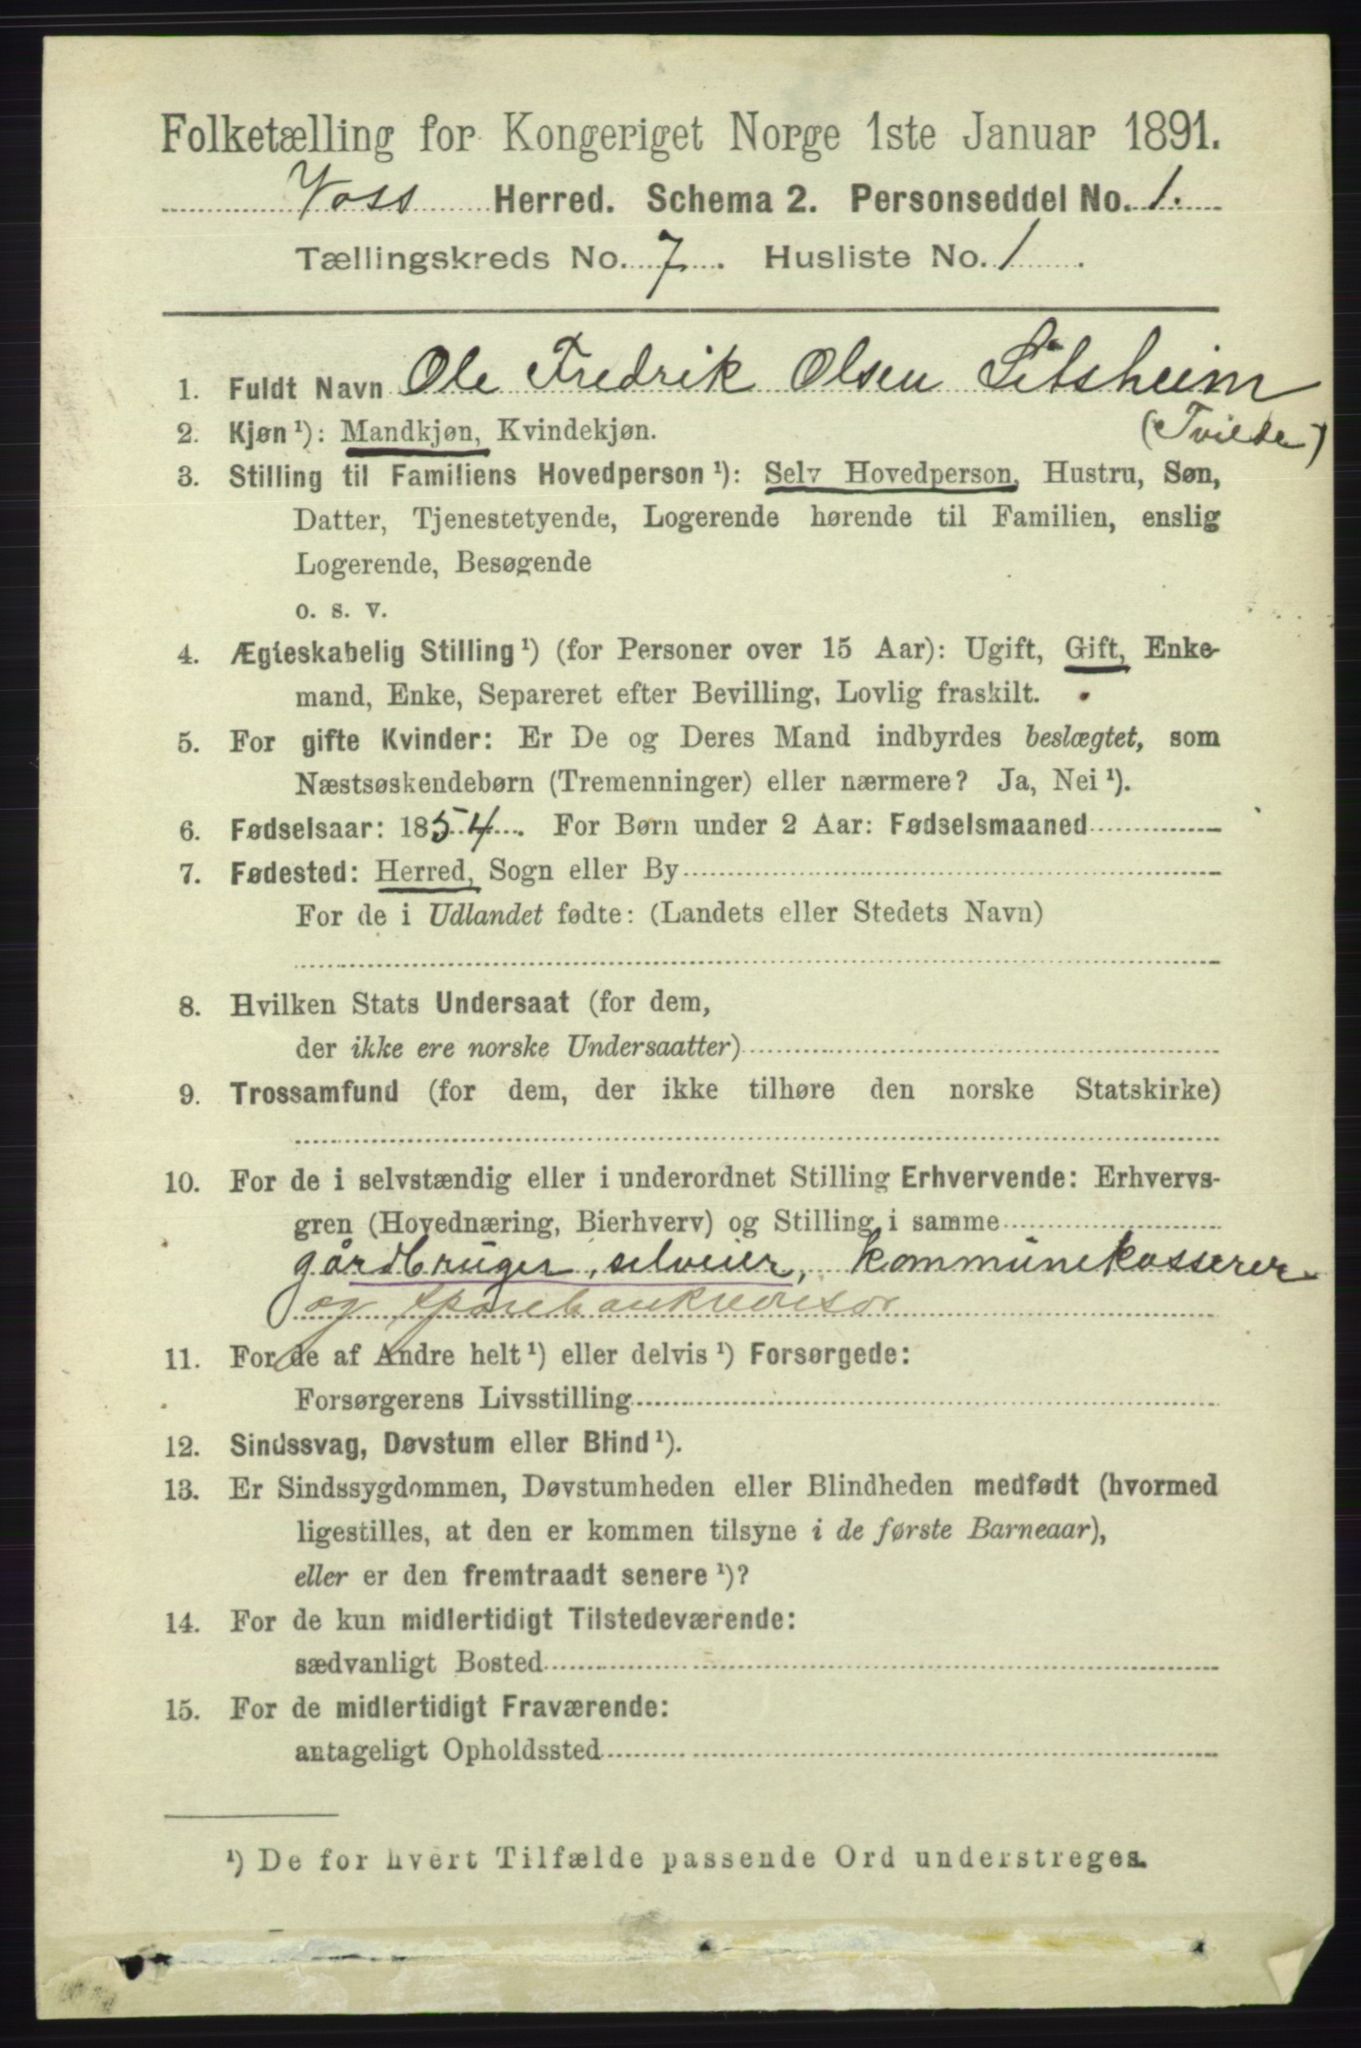 Folketælling for Kongeriget Norge 1ste Januar 1891.
Voss Herred. Schema 2. Personseddel No. 1.
Tællingskreds No. 7. Husliste No. 1.
1. Fuldt Navn Ole Fredrik Olsen
(Tvilde)
2. Kjøn ¹): Mandkjøn, Kvindekjøn.
3. Stilling til Familiens Hovedperson ¹): Selv Hovedperson, Hustru, Søn,
Datter, Tjenestetyende, Logerende hørende til Familien, enslig
Logerende, Besøgende
o. s. v.
4. Ægteskabelig Stilling ¹) (for Personer over 15 Aar): Ugift, Gift, Enke-
mand, Enke, Separeret efter Bevilling, Lovlig fraskilt.
5. For gifte Kvinder: Er De og Deres Mand indbyrdes beslægtet, som
Næstsøskendebørn (Tremenninger) eller nærmere? Ja, Nei ¹).
6. Fødselsaar: 1854. For Børn under 2 Aar: Fødselsmaaned
7. Fødested: Herred, Sogn eller By
For de i Udlandet fødte: (Landets eller Stedets Navn)
8. Hvilken Stats Undersaat (for dem,
der ikke ere norske Undersaatter)
9. Trossamfund (for dem, der ikke tilhøre den norske Statskirke)
10. For de i selvstændig eller i underordnet Stilling Erhvervende: Erhvervs-
gren (Hovednæring, Bierhverv) og Stilling i samme
gårdbruger, selveier, kommunekasserer
og sparebankrevisor
11. For de af Andre helt ¹) eller delvis ¹) Forsørgede:
Forsørgerens Livsstilling
12. Sindssvag, Døvstum eller Blind ¹).
13. Er Sindssygdommen, Døvstumheden eller Blindheden medfødt (hvormed
ligestilles, at den er kommen tilsyne i de første Barneaar),
eller er den fremtraadt senere ¹)?
14. For de kun midlertidigt Tilstedeværende:
sædvanligt Bosted
15. For de midlertidigt Fraværende:
antageligt Opholdssted
¹) De for hvert Tilfælde passende Ord understreges.